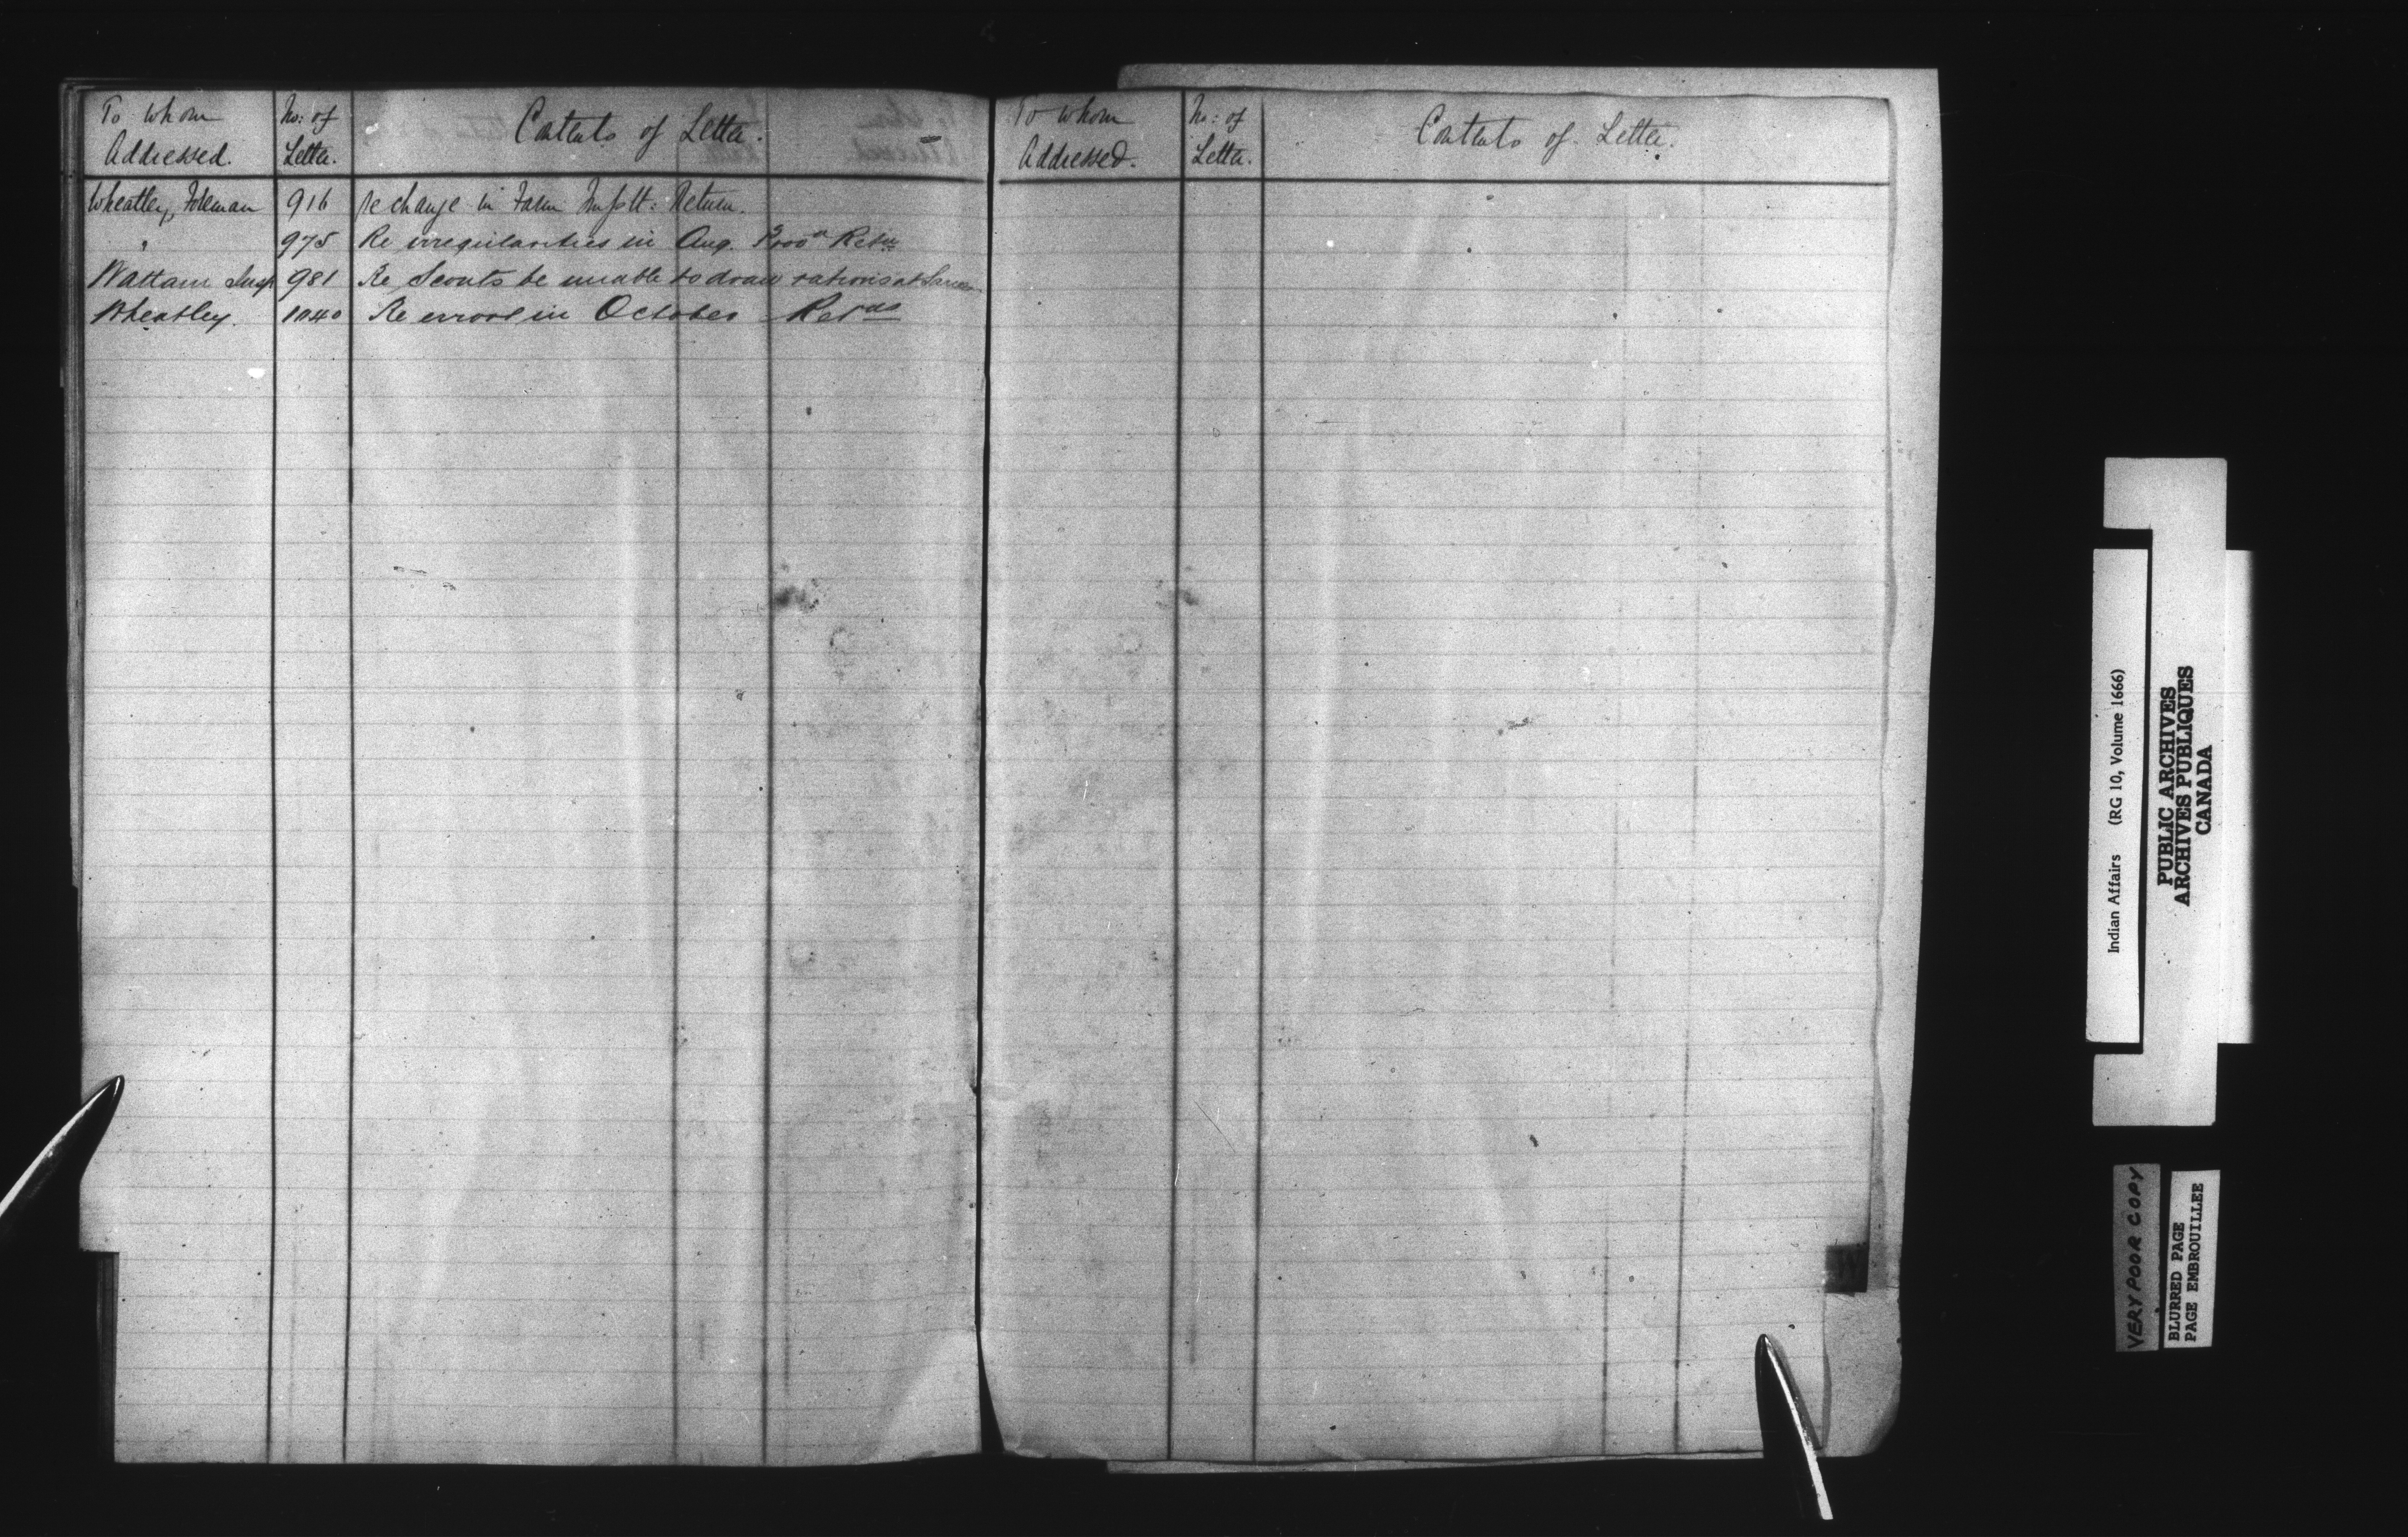 To whom Addressed. No: of Letter. Contents of Letter.
Wheatley, Foreman 916 Re change in Farm Implt: Return.
" 975 Re irregularities in Aug. Retn
Wattam Insp 981 Re Scouts be unable to draw rations at Sarcee
Wheatley. 1040 Re error in October Retns
To whom Addressed. No: of Letter. Contents of Letter.
Indian Affairs (RG 10, Volume 1666)
PUBLIC ARCHIVES
ARCHIVES PUBLIQUES
CANADA
VERY POOR COPY
BLURRED PAGE
PAGE EMBROUILLEE